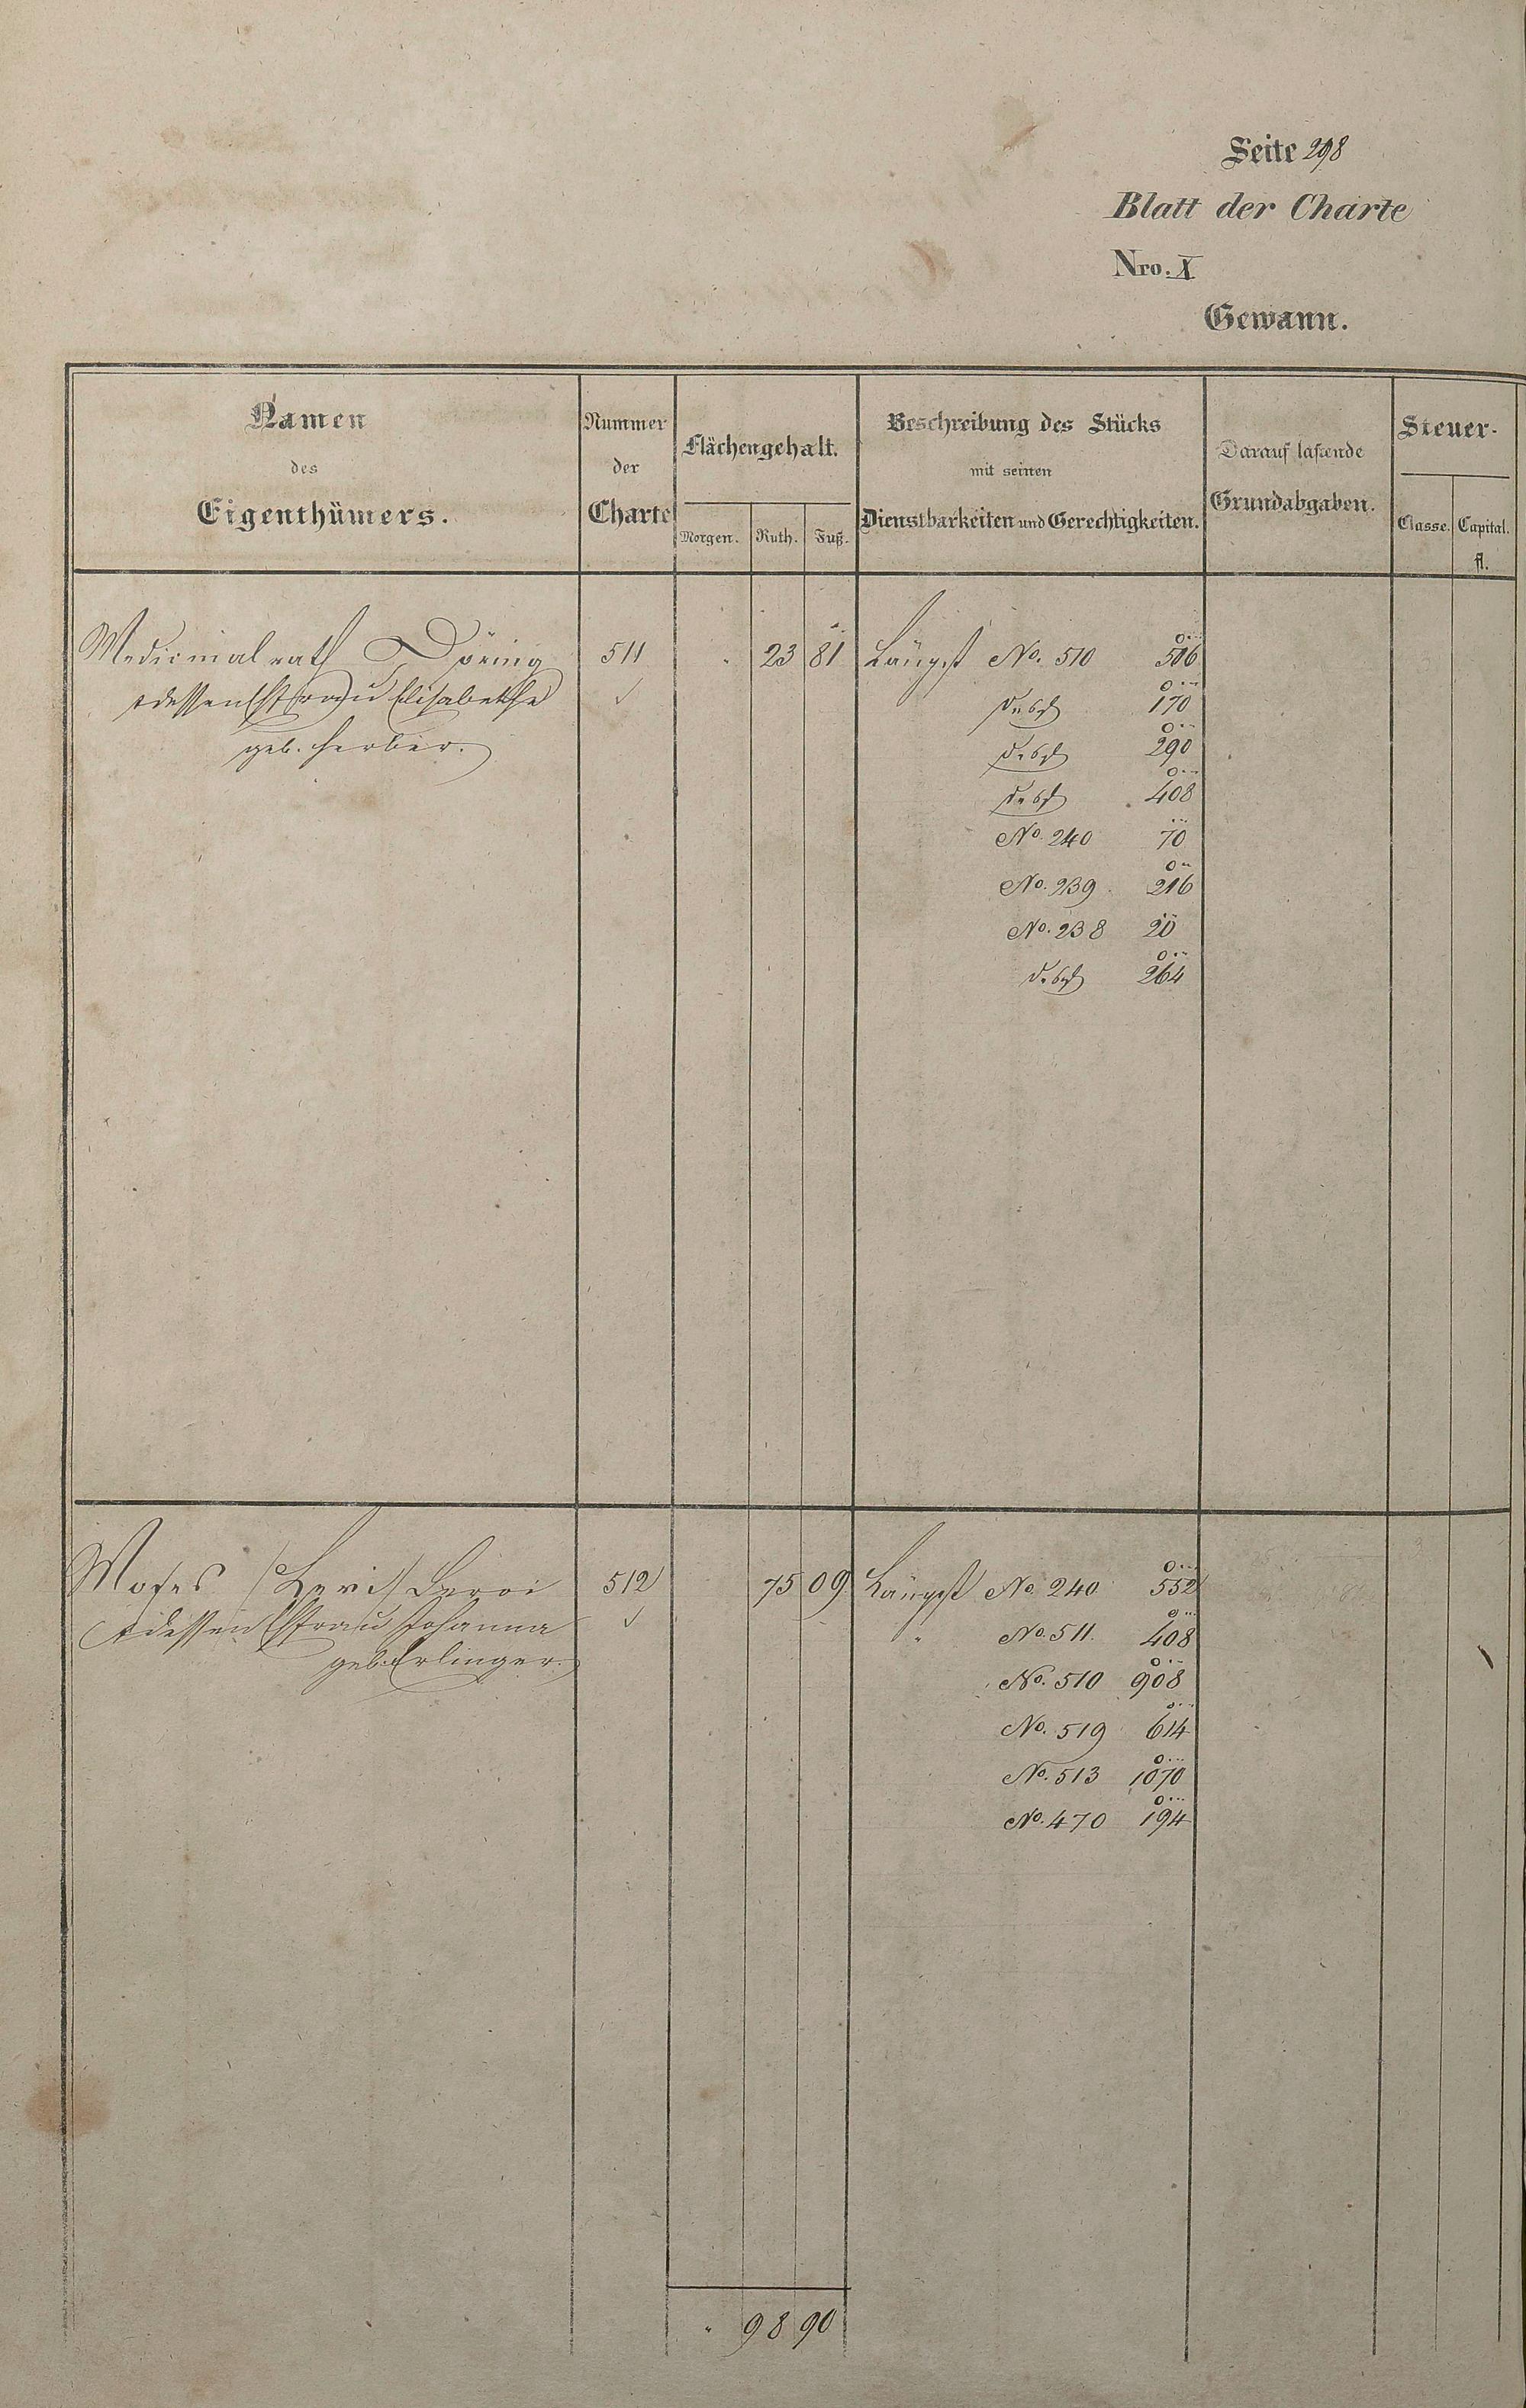 Seite 298
Blatt der Charte
Nro. X
Gewann.
Namen des Eigenthümers.
Nummer der Charte
Flächengehalt.
Morgen. Ruth. Fuß.
Beschreibung des Stücks mit seinen Dienstbarkeiten und Gerechtigkeiten.
Darauf lastende Grundabgaben.
Steuer-
Classe. Capital. fl.
Medicinalrath Döring 511 " 23 81 Längst No. 510 506
& dessen Ehefrau Elisabethe 170
geb. Herber. 290
408
No. 240 70
No. 239 216
No. 238 20
264
Moses 512 75 09 Längst No. 240 552
& dessen Ehefrau Johanna " No. 511. 408
geb. Erlinger. No. 510 908
No. 519 614
No. 513 1070
No. 470 194
" 98 90